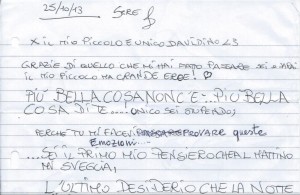 25/10/13 SERE
X IL MIO PICCOLO E UNICO DAVIDINO <3
GRAZIE DI QUELLO CHE MI HAI FATTO PASSARE SEI
IL MIO PICCOLO MA GRANDE EROE! ♡
PIÙ BELLA COSA NON C'È... PIÙ BELLA
COSA DI TE...... UNICO SEI STUPENDO,
PERCHÉ TU MI FACEVI PROVARE queste
EMOZIONI-----
.....SEI IL PRIMO MIO PENSIERO CHE AL MATTINO
MI SVEGLIA,
L'ULTIMO DESIDERIO CHE LA NOTTE